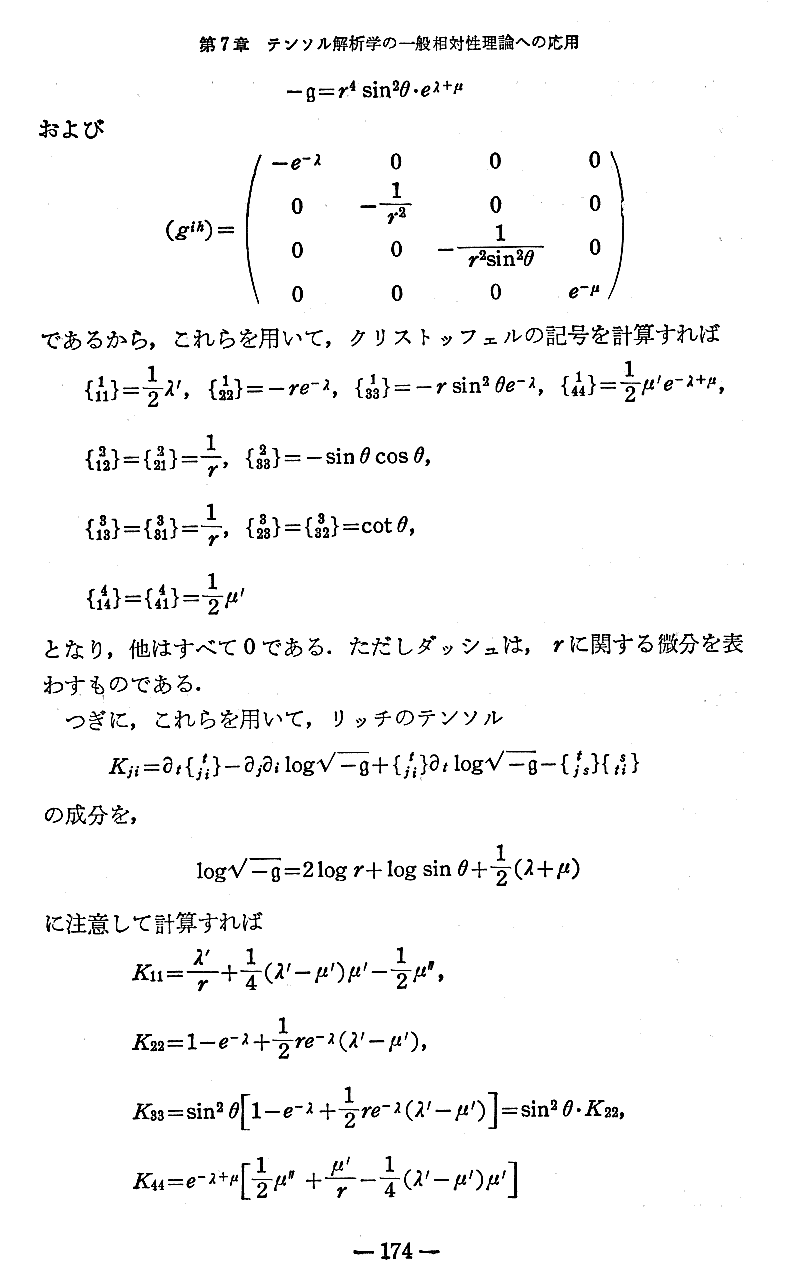 第7章 テンソル解析学の一般相対性理論への応用
−g=r⁴ sin²θ·e^{λ+μ}
および
(g^{ih})= ( −e^{−λ} 0 0 0
0 −1/r² 0 0
0 0 −1/(r²sin²θ) 0
0 0 0 e^{−μ} )
であるから，これらを用いて，クリストッフェルの記号を計算すれば
{^1_{11}}=1/2 λ′, {^1_{22}}=−re^{−λ}, {^1_{33}}=−r sin² θe^{−λ}, {^1_{44}}=1/2 μ′e^{−λ+μ},
{^2_{12}}={^2_{21}}=1/r, {^2_{33}}=−sin θ cos θ,
{^3_{13}}={^3_{31}}=1/r, {^3_{23}}={^3_{32}}=cot θ,
{^4_{14}}={^4_{41}}=1/2 μ′
となり，他はすべて0である．ただしダッシュは，rに関する微分を表
わすものである．
つぎに，これらを用いて，リッチのテンソル
K_{ji}=∂_t{^t_{ji}}−∂_j∂_i log√−g+{^t_{ji}}∂_t log√−g−{^t_{js}}{^s_{ti}}
の成分を，
log√−g=2 log r+log sin θ+1/2(λ+μ)
に注意して計算すれば
K_{11}=λ′/r+1/4(λ′−μ′)μ′−1/2 μ″,
K_{22}=1−e^{−λ}+1/2 re^{−λ}(λ′−μ′),
K_{33}=sin² θ[1−e^{−λ}+1/2 re^{−λ}(λ′−μ′)]=sin² θ·K_{22},
K_{44}=e^{−λ+μ}[1/2 μ″ +μ′/r−1/4(λ′−μ′)μ′]
— 174 —